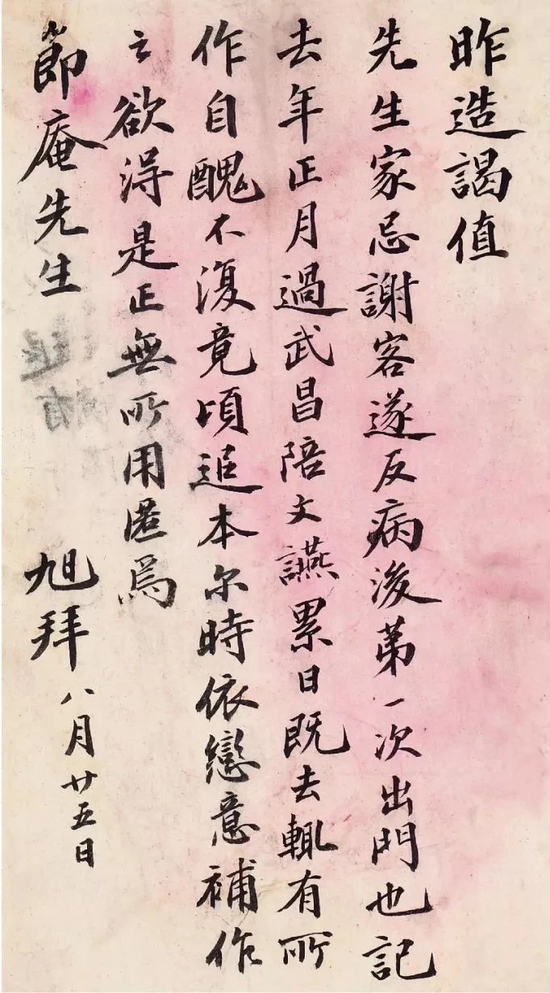 昨造謁值
先生家忌謝客遂反病後第一次出門也記
去年正月過武昌陪文讌累日既去輒有所
作自醜不復竟頃追本尔時依戀意補作
之欲得是正無所用匿焉
節庵先生
旭拜 八月廿五日